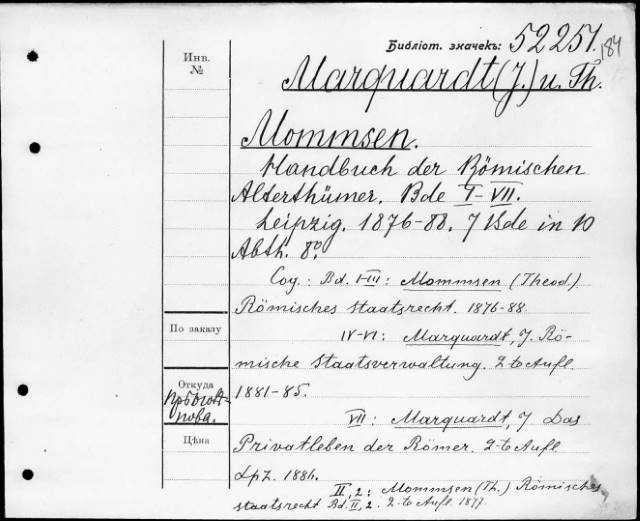 Библіот. значекъ: 52257.
184
Инв.
№
Marquardt (J.) u. Th.
Mommsen.
Handbuch der Römischen
Alterthümer. Bde I-VII.
Leipzig. 1876-88. 7 Bde in 10
Abth. 8°
Сод.: Bd. I-III: Mommsen (Theod.)
Römisches Staatsrecht. 1876-88.
По заказу
IV-VI: Marquardt, J. Rö-
mische Staatsverwaltung. 2-te Aufl.
Откуда
1881-85.
VII: Marquardt, J. Das
Цѣна
Privatleben der Römer. 2-te Aufl.
Lpz. 1886.
II, 2: Mommsen (Th.) Römisches
Staatsrecht Bd. II, 2. 2-te Aufl. 1877.